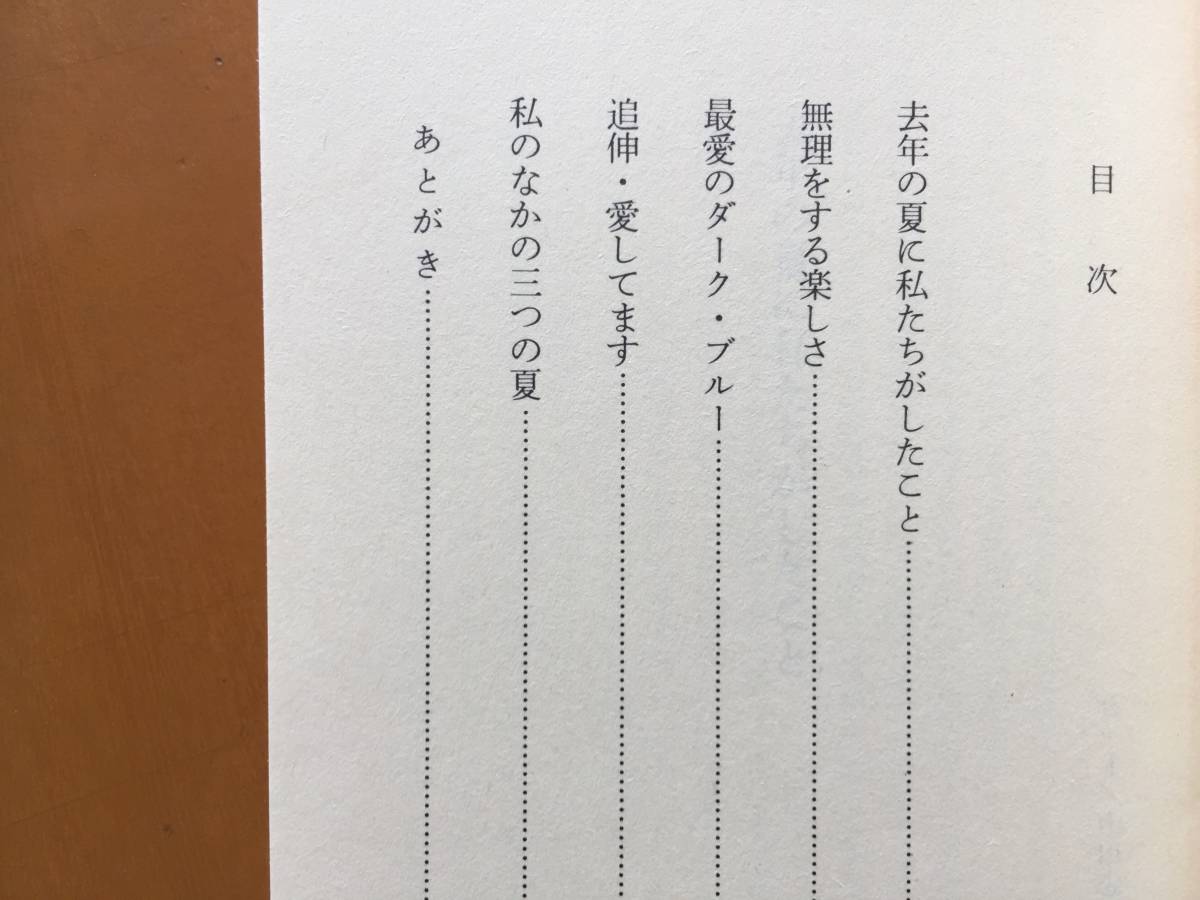 目次
去年の夏に私たちがしたこと
無理をする楽しさ
最愛のダーク・ブルー
追伸・愛してます
私のなかの三つの夏
あとがき